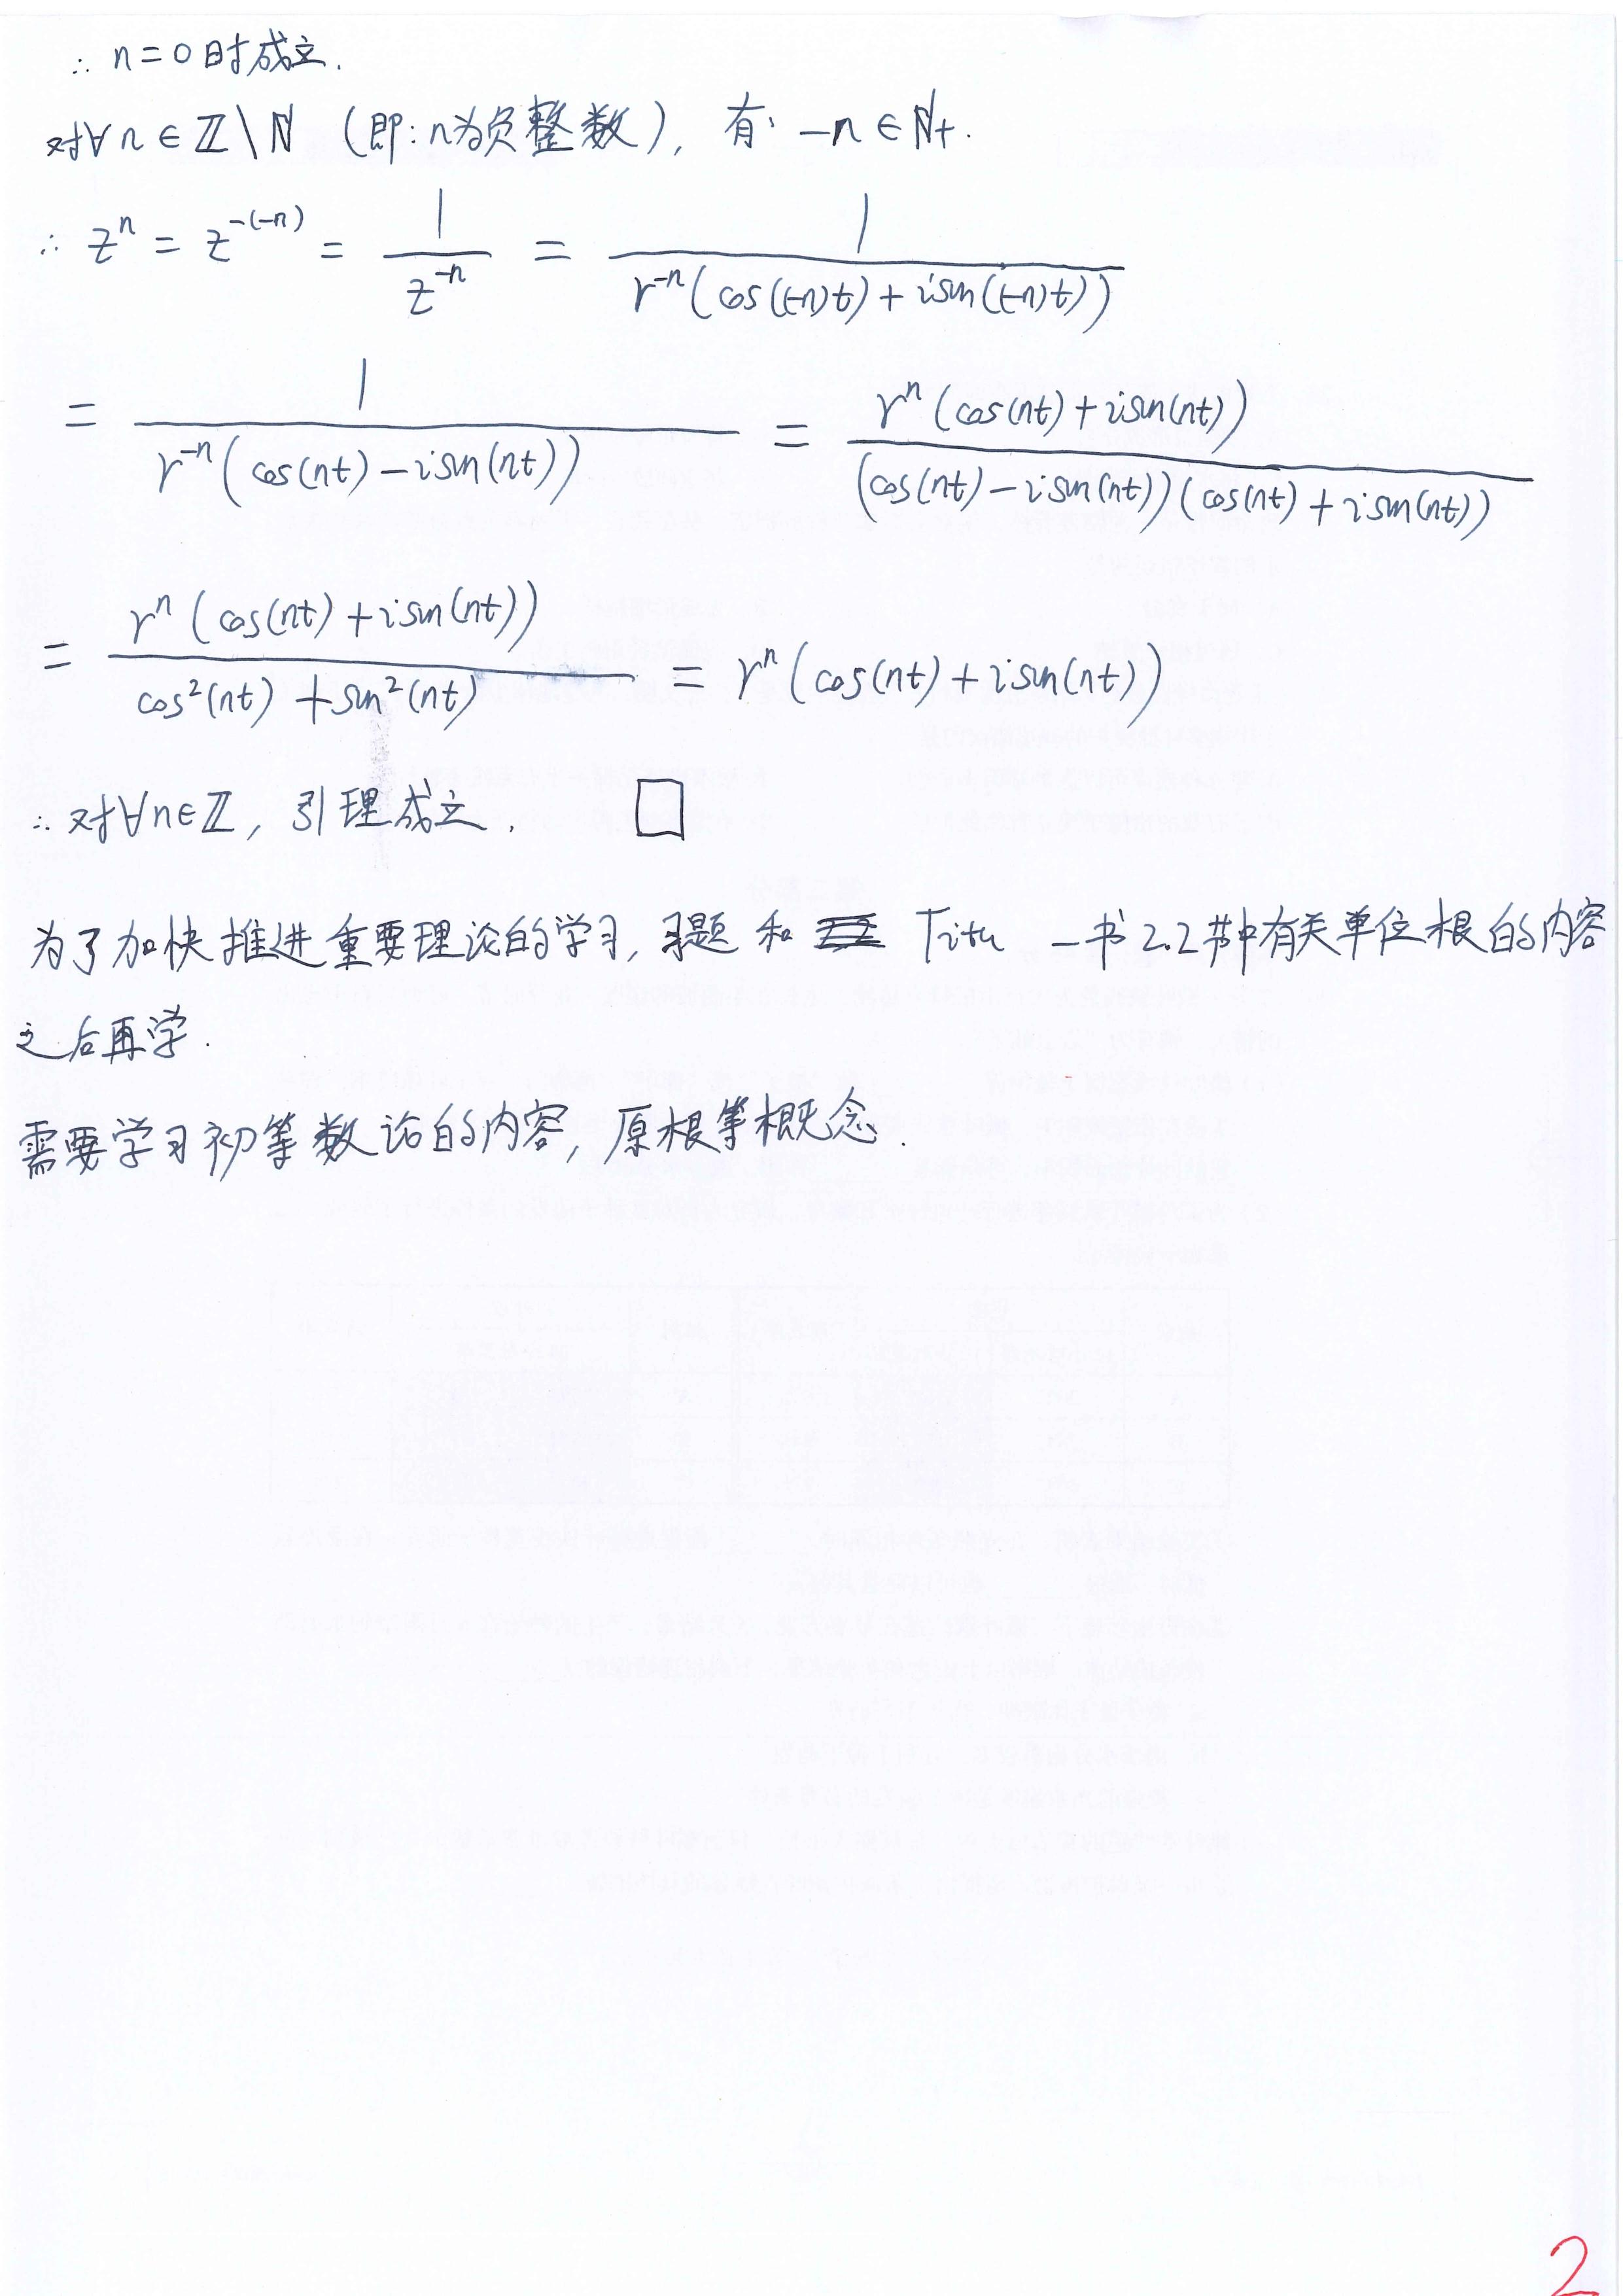 ∴ n=0时成立.
对∀n∈ℤ\ℕ (即:n为负整数), 有: -n∈ℕ+.
∴ z^n = z^{-(-n)} = \frac{1}{z^{-n}} = \frac{1}{r^{-n}(cos((-n)t)+isin((-n)t))}
= \frac{1}{r^{-n}(cos(nt)-isin(nt))} = \frac{r^n(cos(nt)+isin(nt))}{(cos(nt)-isin(nt))(cos(nt)+isin(nt))}
= \frac{r^n(cos(nt)+isin(nt))}{cos^2(nt)+sin^2(nt)} = r^n(cos(nt)+isin(nt))
∴ 对∀n∈ℤ, 引理成立. □
为了加快推进重要理论的学习, 习题和 Titu 一书2.2节中有关单位根的内容
之后再学.
需要学习初等数论的内容, 原根等概念.
2